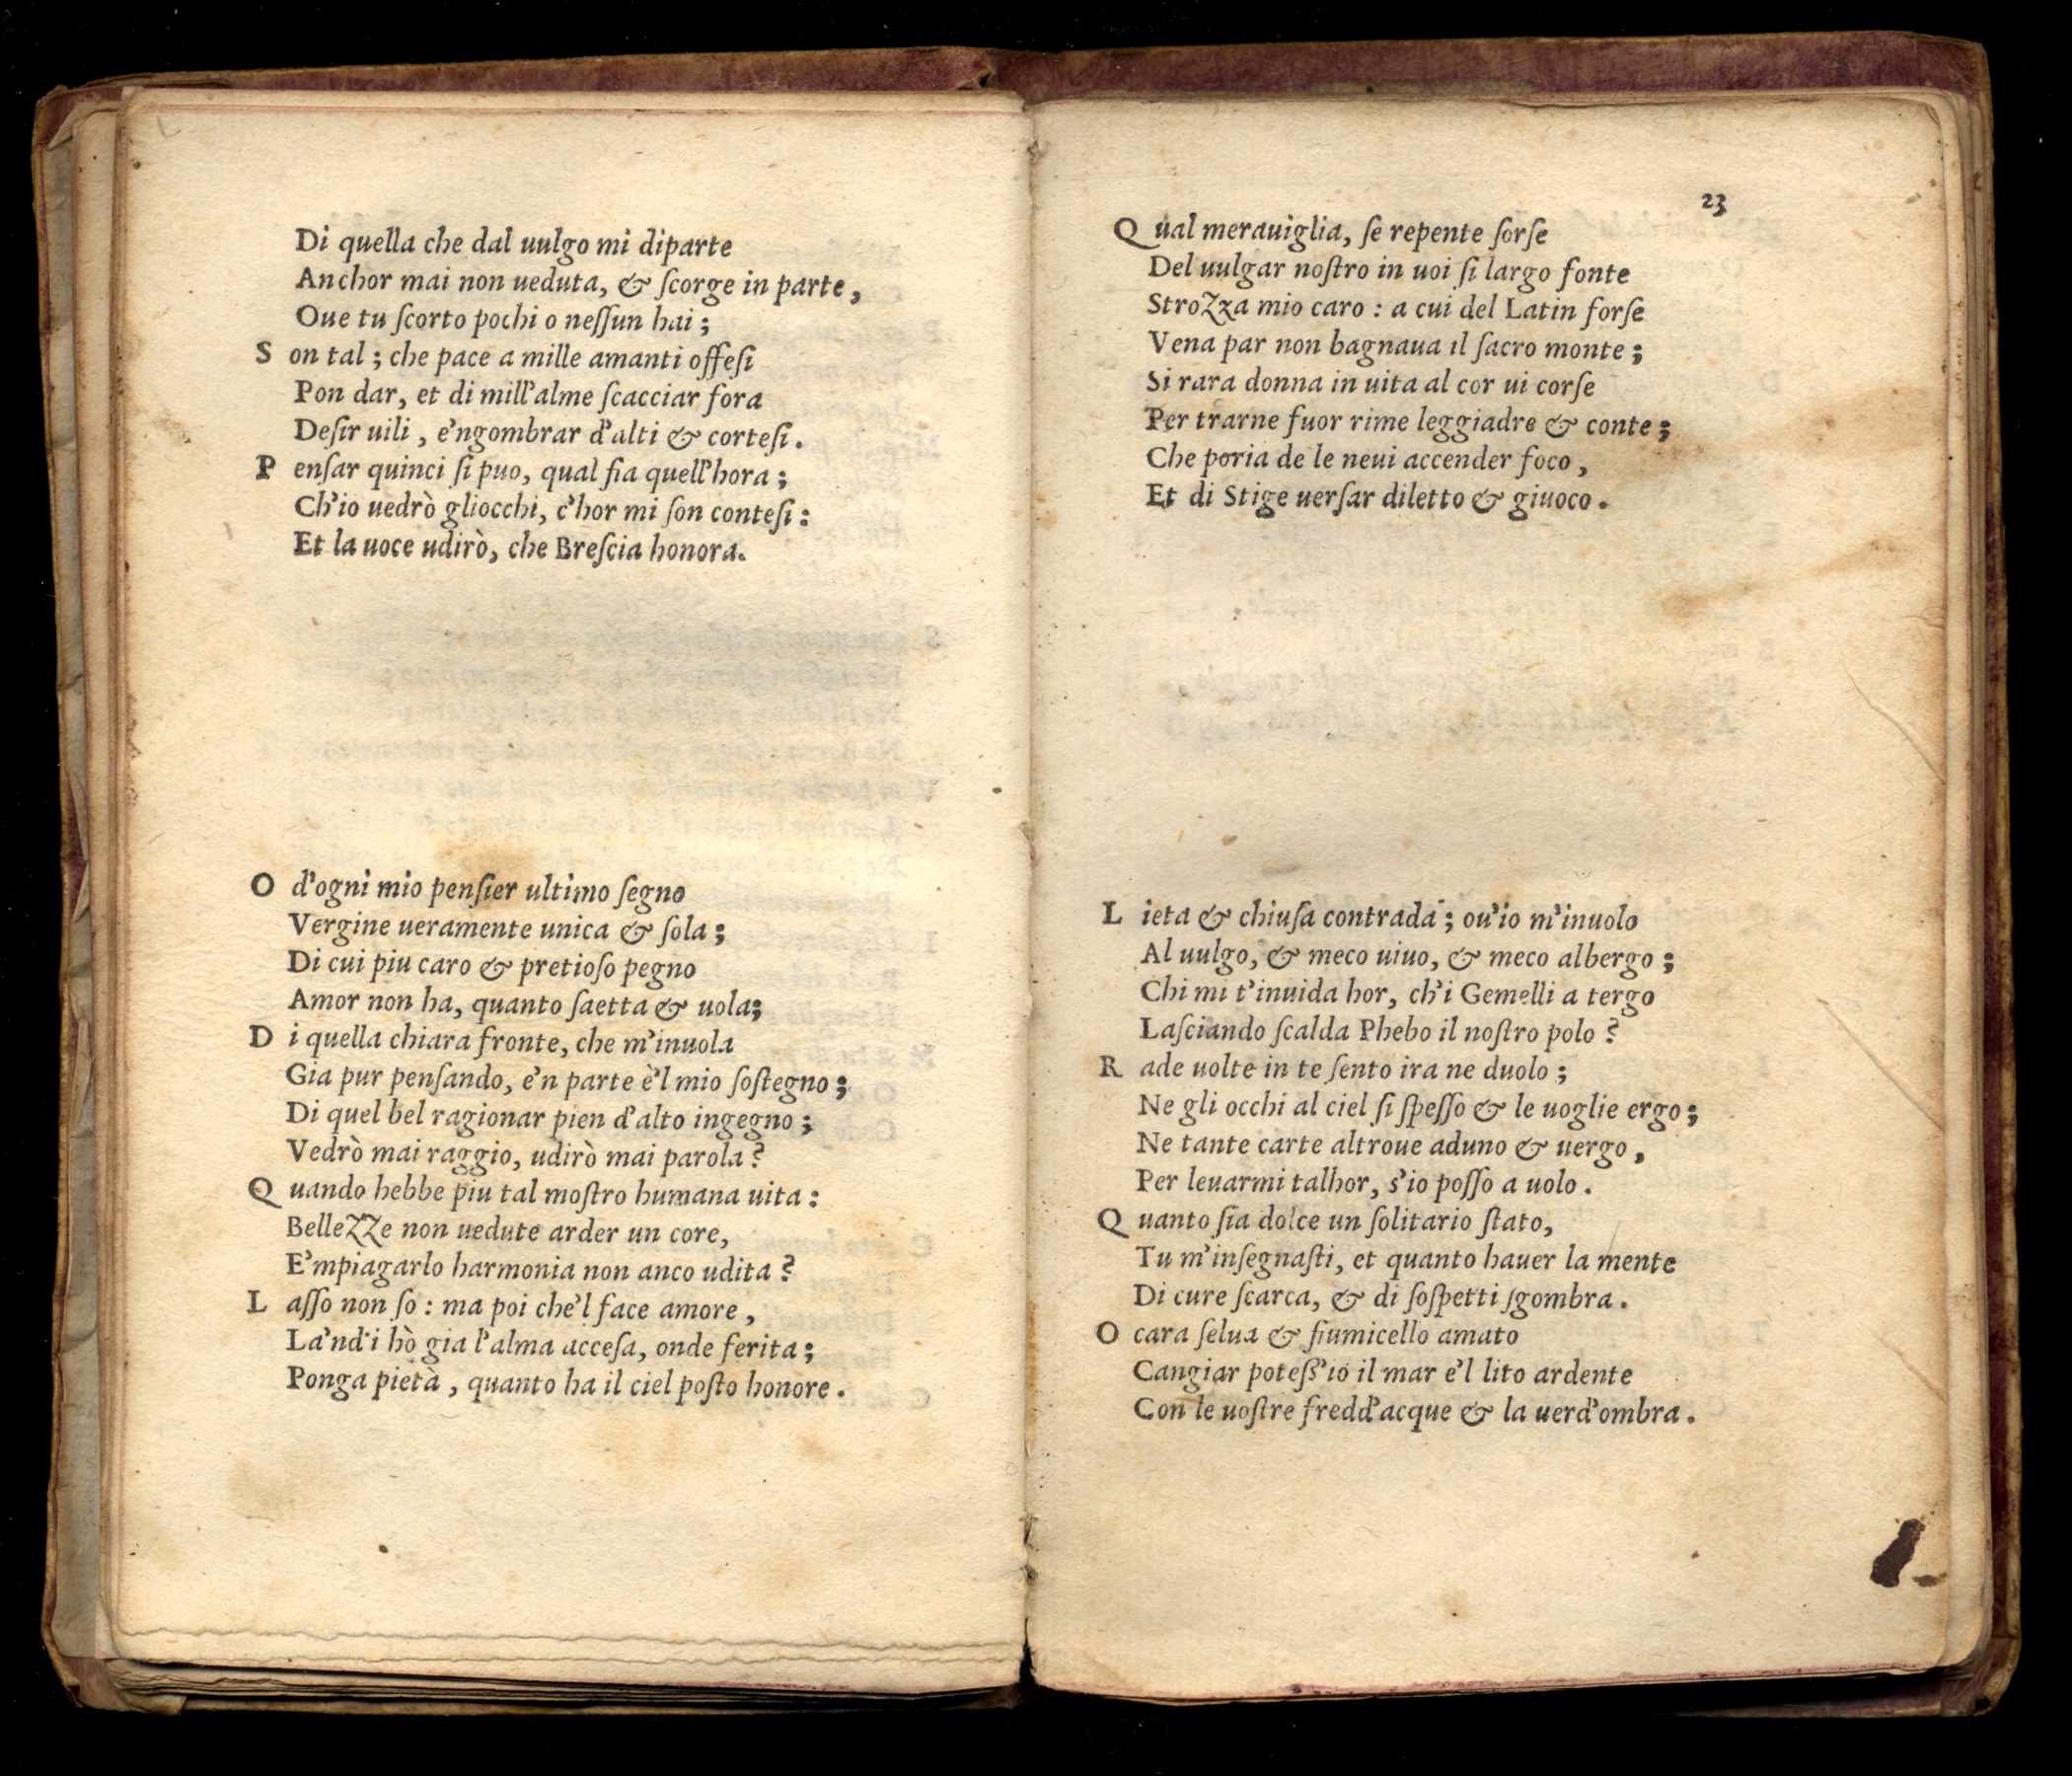 Di quella che dal uulgo mi diparte
Anchor mai non ueduta, & ſcorge in parte,
Oue tu ſcorto pochi o neſſun hai;
S on tal; che pace a mille amanti offeſi
Pon dar, et di mill'alme ſcacciar fora
Deſir uili, e'ngombrar d'alti & corteſi.
P enſar quinci ſi puo, qual fia quell'hora;
Ch'io uedrò gliocchi, c'hor mi ſon conteſi:
Et la uoce udirò, che Breſcia honora.
O d'ogni mio penſier ultimo ſegno
Vergine ueramente unica & ſola;
Di cui piu caro & pretioſo pegno
Amor non ha, quanto ſaetta & uola;
D i quella chiara fronte, che m'inuola
Gia pur penſando, e'n parte è'l mio ſoſtegno;
Di quel bel ragionar pien d'alto ingegno;
Vedrò mai raggio, udirò mai parola?
Q uando hebbe piu tal moſtro humana uita:
Bellezze non uedute arder un core,
E'mpiagarlo harmonia non anco udita?
L aſſo non ſo: ma poi che'l face amore,
La'nd'i hò gia l'alma acceſa, onde ferita;
Ponga pietà, quanto ha il ciel poſto honore.
23
Q ual merauiglia, ſe repente ſorſe
Del uulgar noſtro in uoi ſi largo fonte
Strozza mio caro: a cui del Latin forſe
Vena par non bagnaua il ſacro monte;
Si rara donna in uita al cor ui corſe
Per trarne fuor rime leggiadre & conte;
Che poria de le neui accender foco,
Et di Stige uerſar diletto & giuoco.
L ieta & chiuſa contrada; ou'io m'inuolo
Al uulgo, & meco uiuo, & meco albergo;
Chi mi t'inuida hor, ch'i Gemelli a tergo
Laſciando ſcalda Phebo il noſtro polo?
R ade uolte in te ſento ira ne duolo;
Ne gli occhi al ciel ſi ſpeſſo & le uoglie ergo;
Ne tante carte altroue aduno & uergo,
Per leuarmi talhor, s'io poſſo a uolo.
Q uanto ſia dolce un ſolitario ſtato,
Tu m'inſegnaſti, et quanto hauer la mente
Di cure ſcarca, & di ſoſpetti ſgombra.
O cara ſelua & fiumicello amato
Cangiar poteſs'io il mar e'l lito ardente
Con le uoſtre fredd'acque & la uerd'ombra.